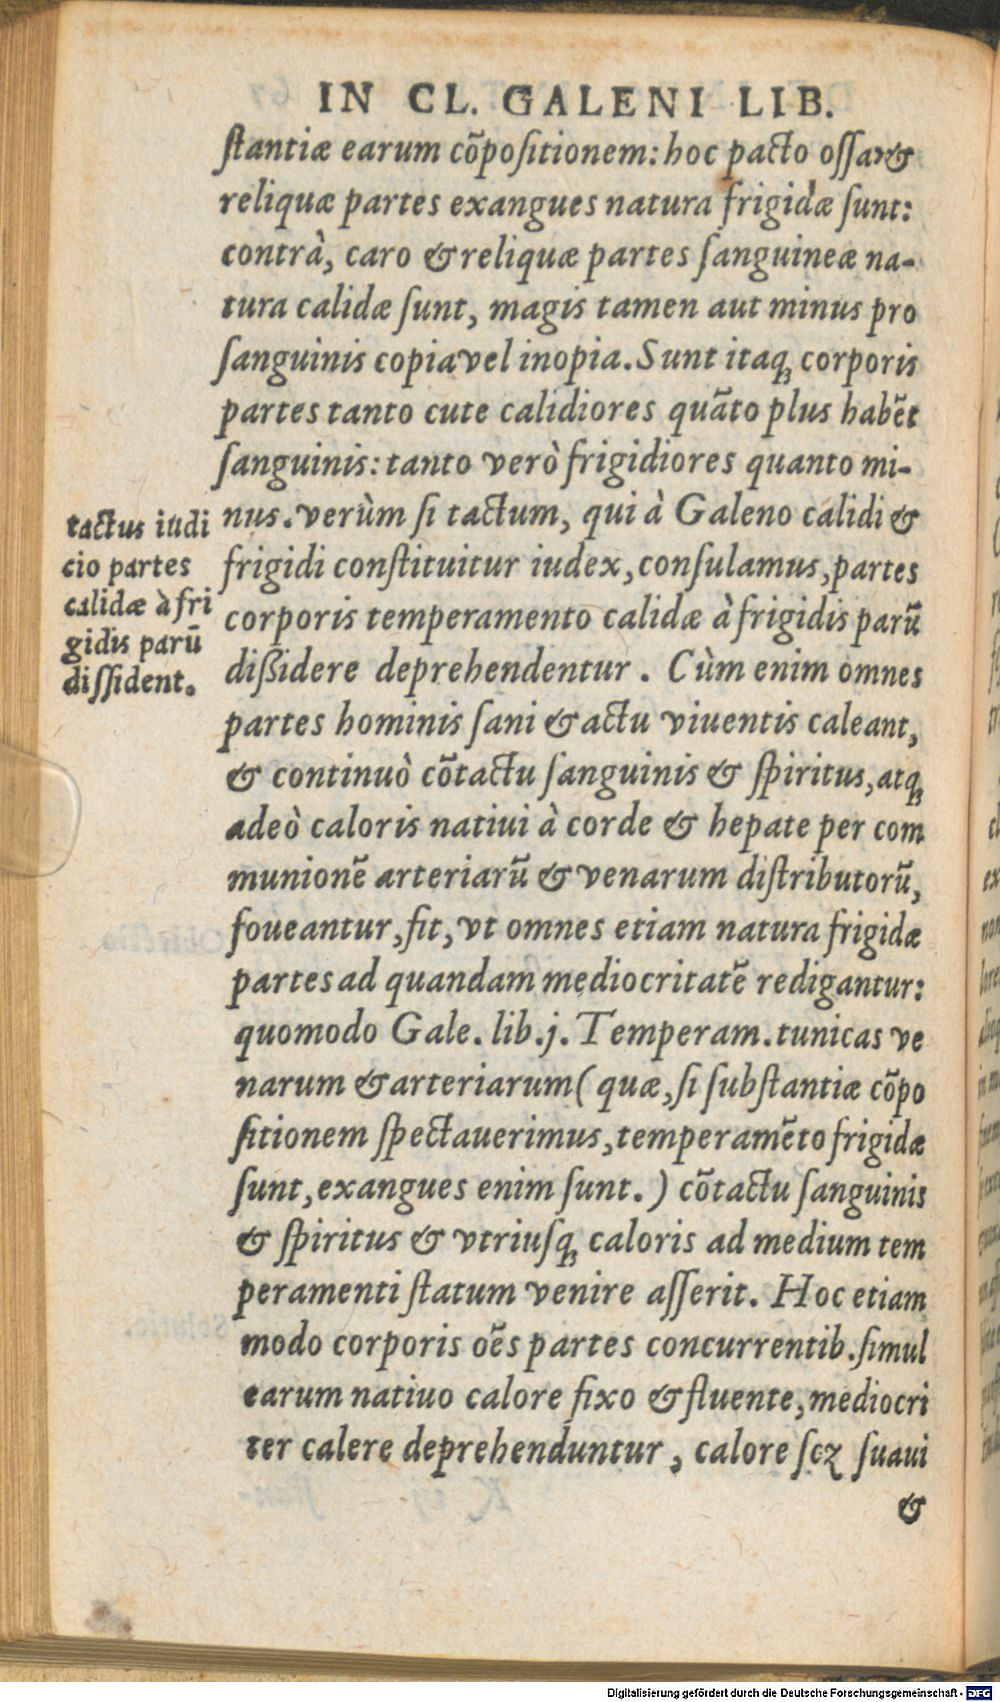 IN CL. GALENI LIB.
ſtantiæ earum cõpoſitionem: hoc pacto oſſa, &
reliquæ partes exangues natura frigidæ ſunt:
contrà, caro & reliquæ partes ſanguineæ na-
tura calidæ ſunt, magis tamen aut minus pro
ſanguinis copia vel inopia. Sunt itaq; corporis
partes tanto cute calidiores quãto plus habẽt
ſanguinis: tanto verò frigidiores quanto mi-
nus. verùm ſi tactum, qui à Galeno calidi &
frigidi conſtituitur iudex, conſulamus, partes
corporis temperamento calidæ à frigidis parũ
dißidere deprehendentur. Cùm enim omnes
partes hominis ſani & actu viuentis caleant,
& continuò cõtactu ſanguinis & ſpiritus, atq;
adeò caloris natiui à corde & hepate per com
munionẽ arteriarũ & venarum diſtributorũ,
foueantur, fit, vt omnes etiam natura frigidæ
partes ad quandam mediocritatẽ redigantur:
quomodo Gale. lib. j. Temperam. tunicas ve
narum & arteriarum ( quæ, ſi ſubſtantiæ cõpo
ſitionem ſpectauerimus, temperamẽto frigidæ
ſunt, exangues enim ſunt. ) cõtactu ſanguinis
& ſpiritus & vtriuſq; caloris ad medium tem
peramenti ſtatum venire aſſerit. Hoc etiam
modo corporis oẽs partes concurrentib. ſimul
earum natiuo calore fixo & fluente, mediocri
ter calere deprehenduntur, calore ſcꝫ ſuaui
&
tactus iudi
cio partes
calidæ à fri
gidis parũ
diſſident.
Digitalisierung gefördert durch die Deutsche Forschungsgemeinschaft - DFG